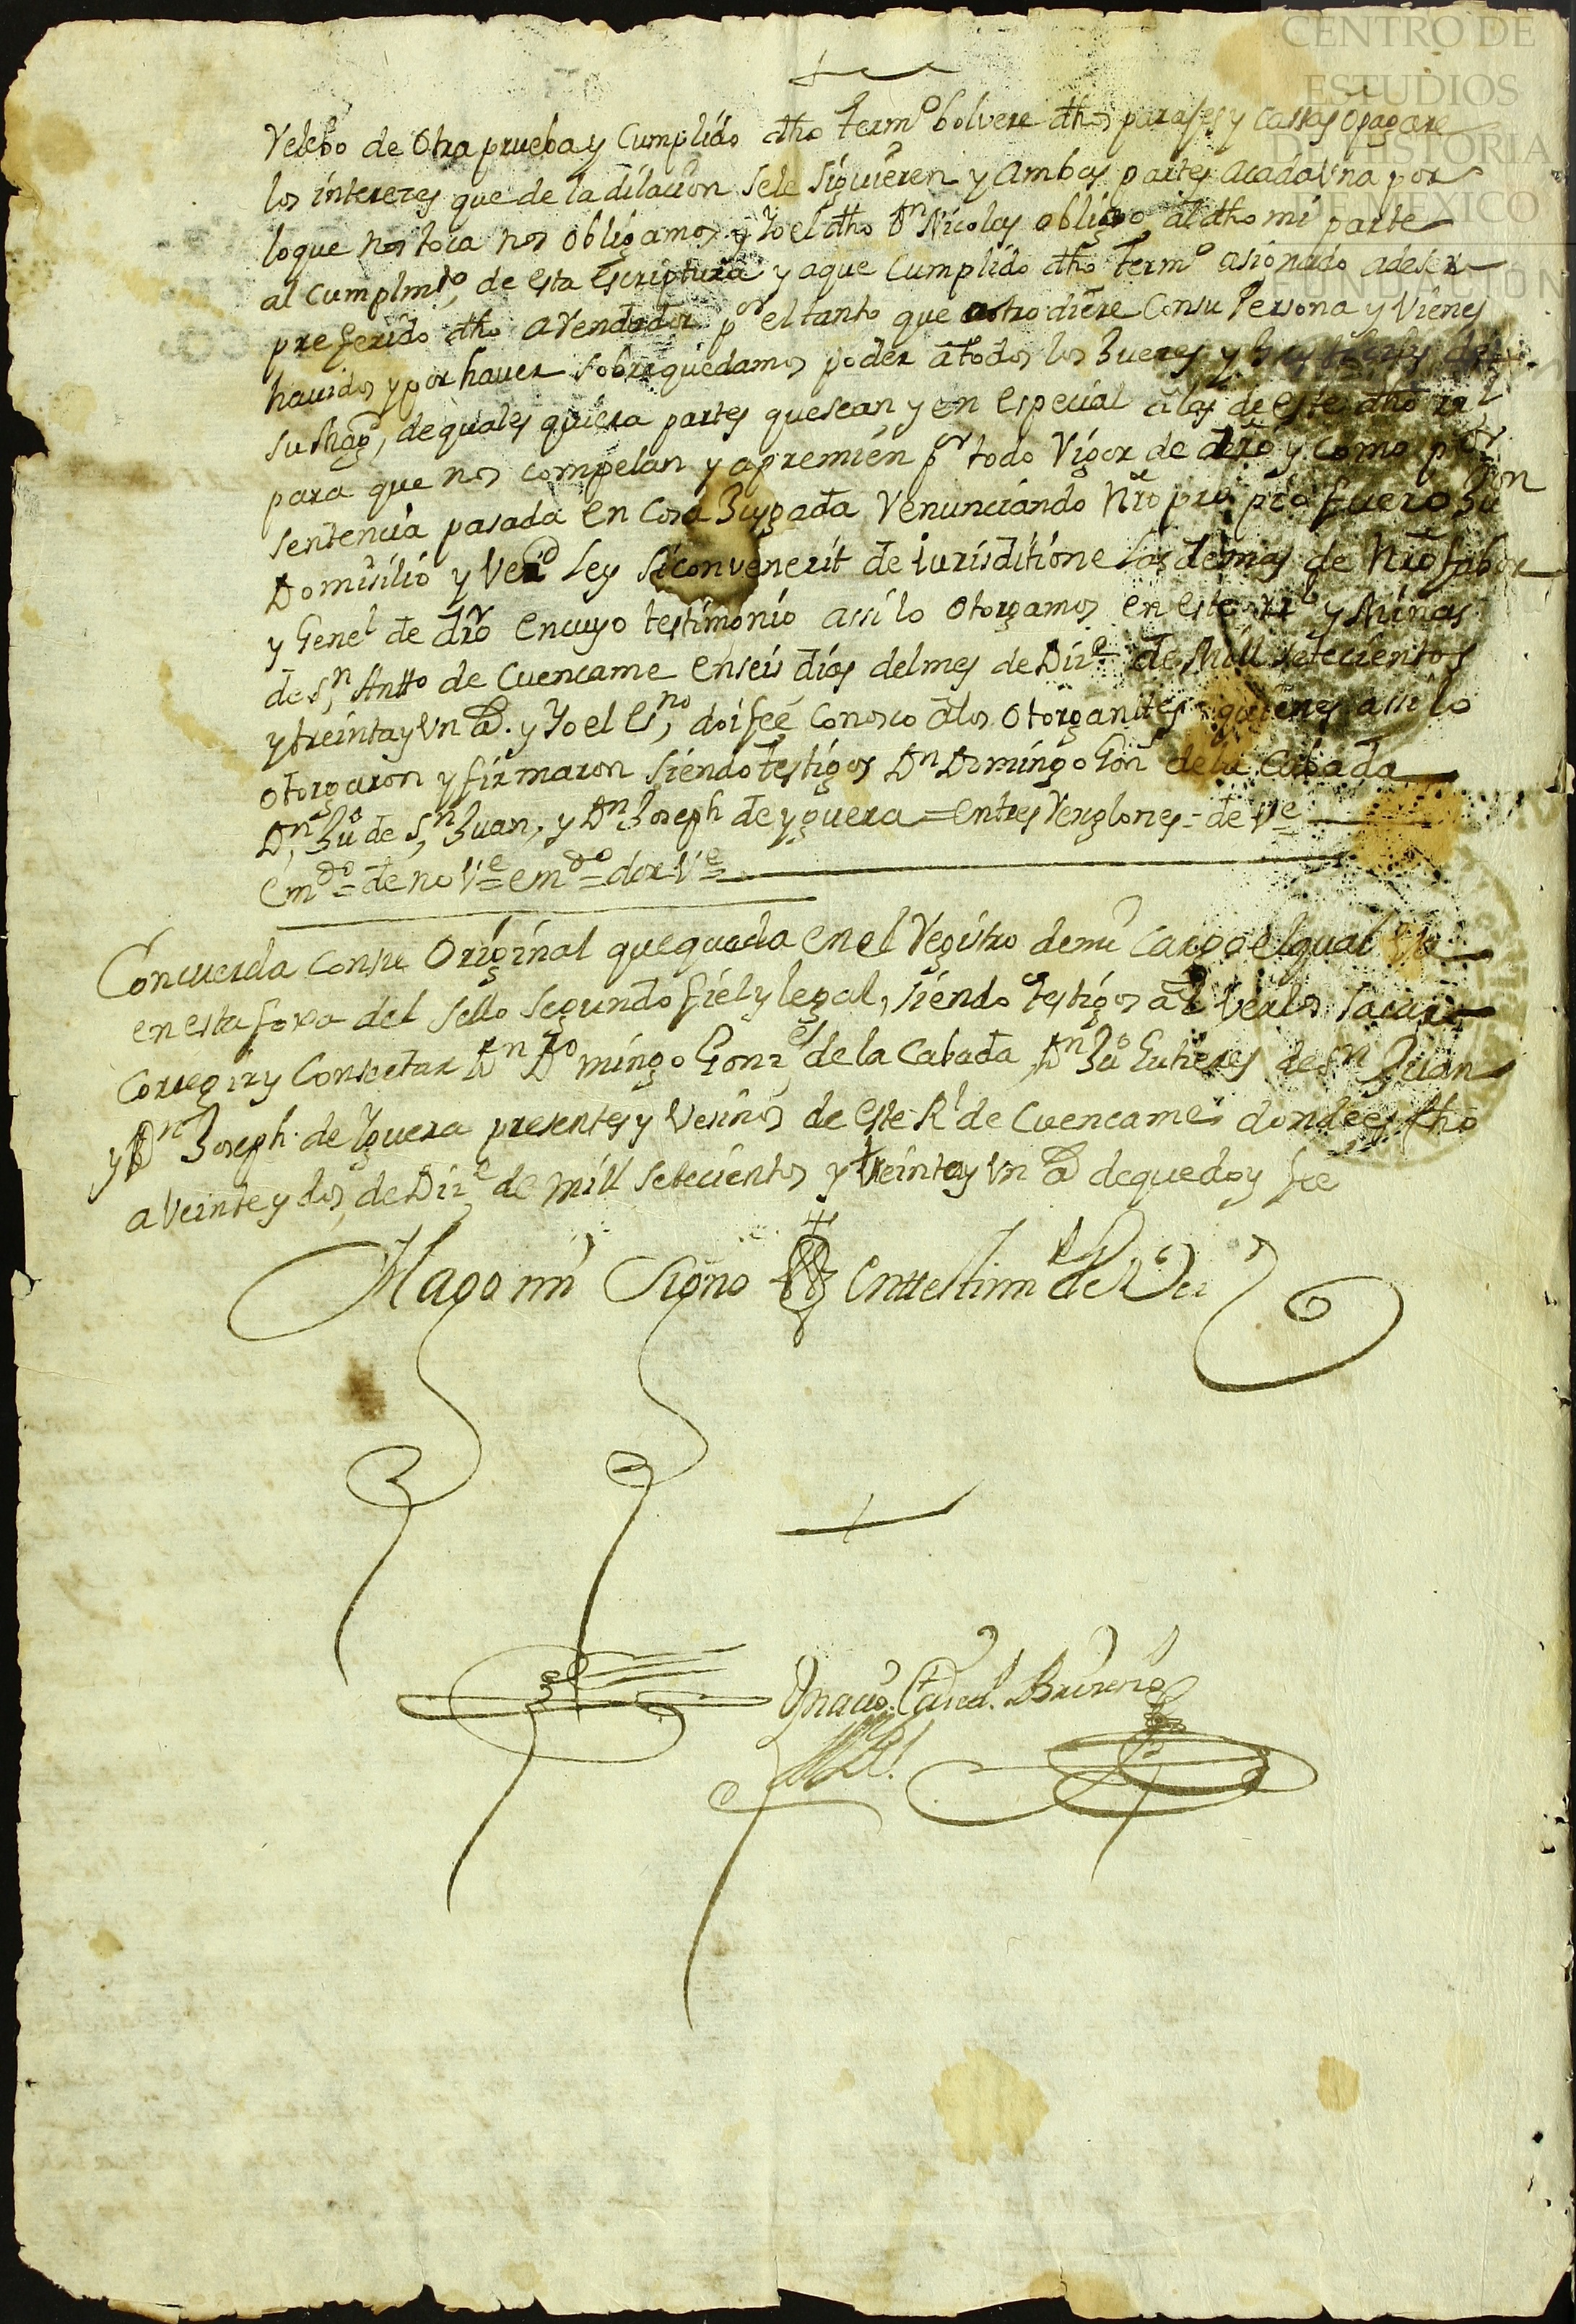 CENTRO DE
ESTUDIOS
DE HISTORIA
DE MEXICO
FUNDACIÓN
Velebo de Otra prueba y Cumplido dho term.o bolvere dhos parajes y Cassas o pagare
los interezes que de la dilacion sele siguieren y ambas partes acada Vna por
loque nos toca nos obligamos y Yo el dho Dn Nicolas obligo al dho mi parte
al Cumplmto, de esta Escriptura y aque Cumplido dho Termo asignado a deser
preferido dho avendador por el tanto que ostro diere Consu Persona y Vienes
havidos y por haver sobrequedamos poder a todos los Jueses y
su Magd, de quales quiera partes quesean y en especial a las de este dho rl
para que nos compelan y apremien pr todo Vigor de dro y como por
sentencia pasada en Cosa Jusgada Venunciando Nro propio fuero Jurn
Domisilio y Vezd Ley siconvenerit de iurisditione las demas de Nro fabor
y Genel de dro encuyo testimonio assi lo Otorgamos en este rl y Minas
de Sn Antto de Cuencame enseis dias delmes de Dize de Mill setecientos
y treinta y Vn as. y Yo el Esno, doi feé Conosco a los Otorgantes quienes assi lo
otorgaron y firmaron siendo testigos Dn Domingo Gon de la Cabada
Dn, Ju de Sn, Juan, y Dn Joseph de yguera = entres Renglones = de Ve
emdo = de no Ve = emdo = dor Ve =
Concuerda Consu Original quequeda en el Registro demi Cargo elqual Va
en esta foxa del sello segundo fiel y legal, siendo testigos al Verlos sacar
Corregir y Consertar Dn Domingo Gonzs de la Cabada, Dn Ju Gutieres de Sn Juan
y Dn Joseph de Yguera presentes y Vesinos de este Rl de Cuencame donde es fho
a Veinte y dos, de Dize de mill setecientos y treinta y Vn as dequedoy fee
Hago mi Signo Enttestimo de Ver